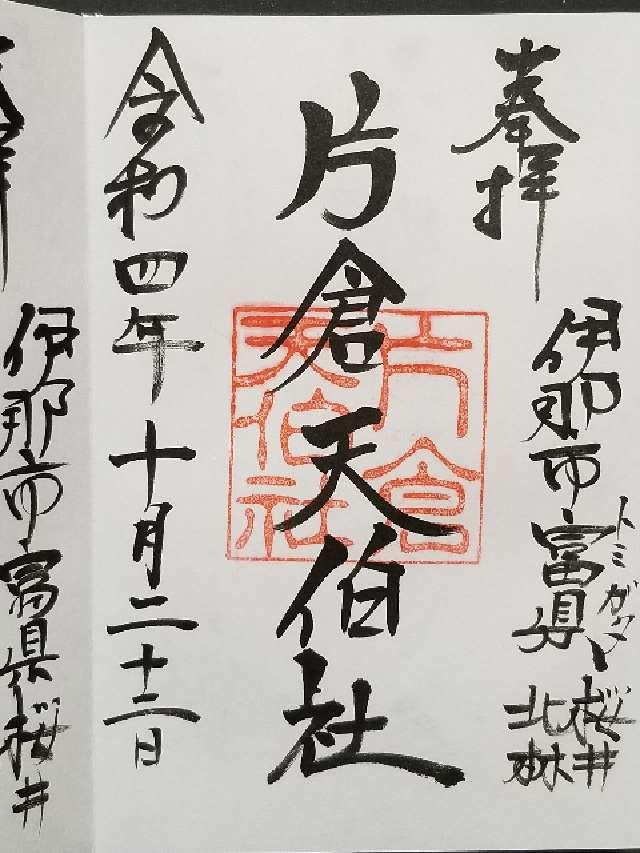 奉拝
伊那市富県
トミガタ
桜井
北林
片倉天伯社
片倉天伯社
令和四年十月二十三日
伊那市富県桜井